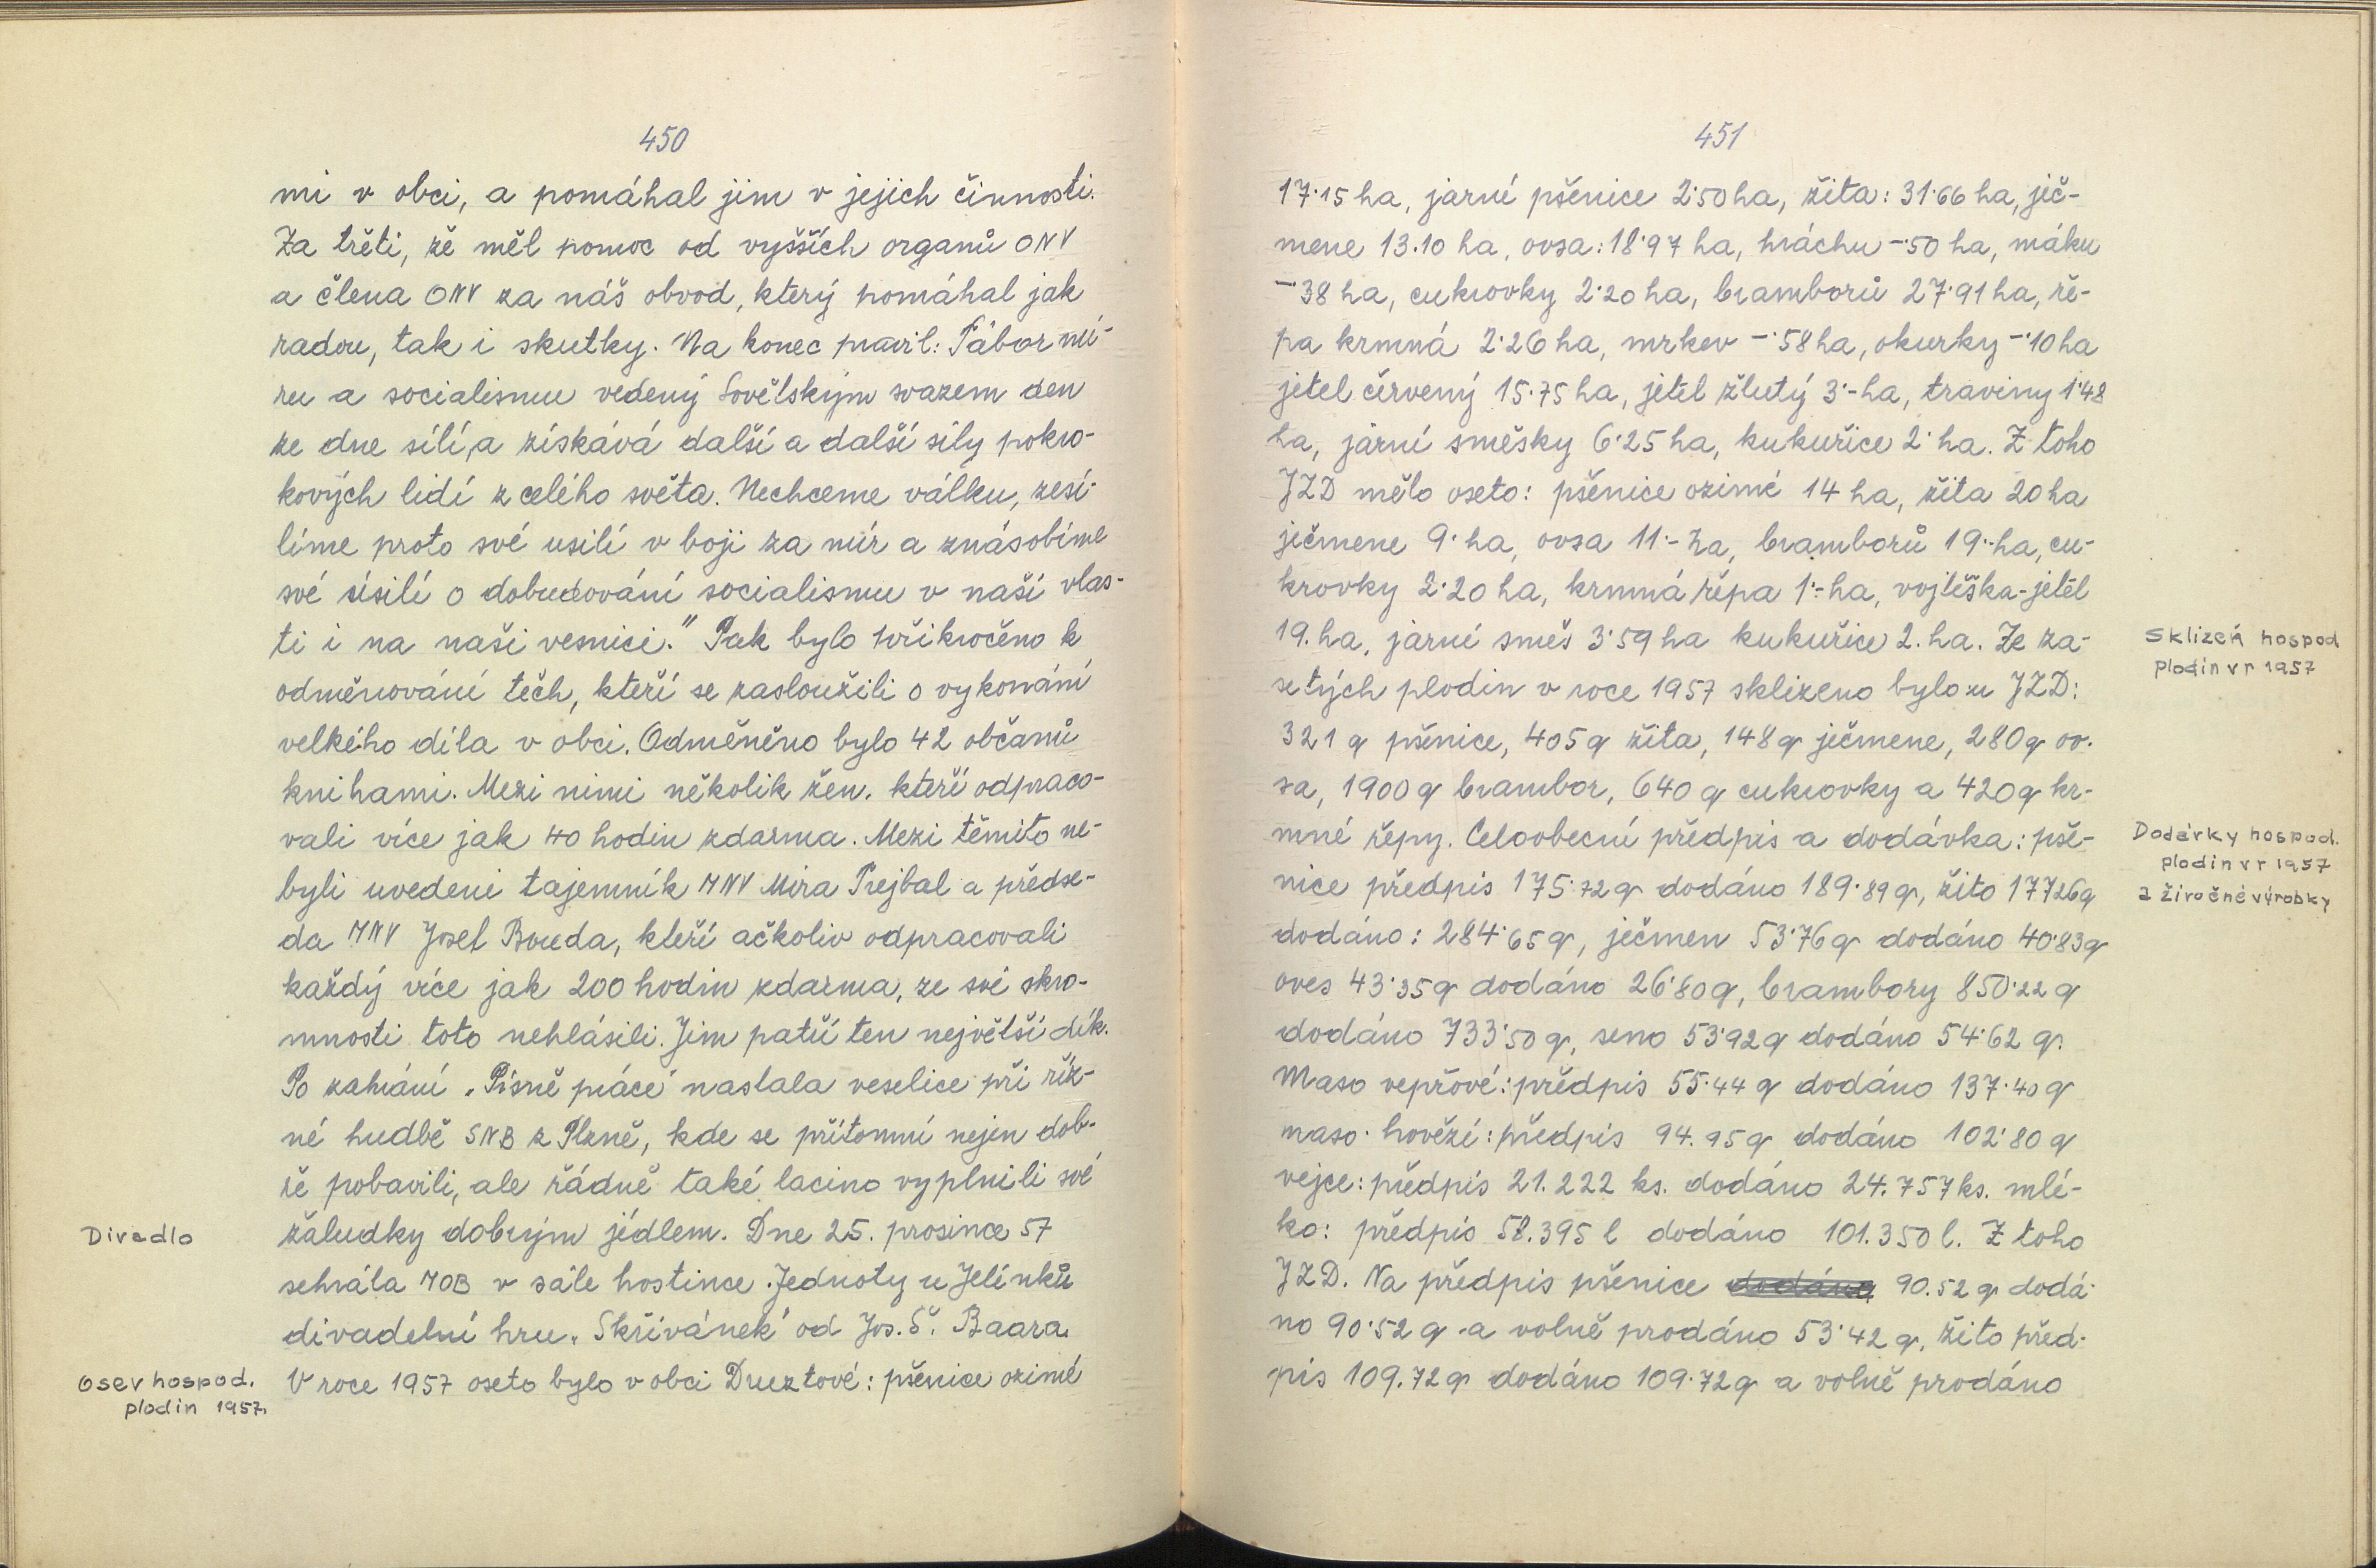 450
mi v obci, a pomáhal jim v jejich činnosti.
Za třetí, že měl pomoc od vyšších organů ONV
a člena ONV za náš obvod, který pomáhal jak
radou, tak i skutky. Na konec pravil: Tábor mí-
ru a socialismu vedený Sovětským svazem den
ze dne sílí, a získává další a další síly pokro-
kových lidí z celého světa. Nechceme válku, zesí-
líme proto své usilí v boji za mír a znásobíme
své úsilí o dobudování socialismu v naší vlas-
ti i na naši vesnici." Pak bylo přikročeno k
odměňování těch, kteří se zasloužili o vykonání
velkého díla v obci. Odměněno bylo 42 občanů
knihami. Mezi nimi několik žen. kteří odpraco-
vali více jak 40 hodin zdarma. Mezi těmito ne-
byli uvedeni tajemník MNV Míra Trejbal a předse-
da MNV Josef Bouda, kteří ačkoliv odpracovali
každý více jak 200 hodin zdarma, ze své skro-
mnosti toto nehlásili. Jim patří ten největší dík.
Po zahrání „Písně práce" nastala veselice při říz-
né hudbě SNB z Plzně, kde se přítomní nejen dob-
ře pobavili, ale řádně také lacino vyplnili své
Divadlo
žaludky dobrým jídlem. Dne 25. prosince 57
sehrála MOB v sále hostince Jednoty u Jelínků
divadelní hru „Skřivánek" od Jos. Š. Baara.
Osev hospod.
plodin 1957.
V roce 1957 oseto bylo v obci Druztové: pšenice ozimé
451
17·15 ha, jarní pšenice 2·50 ha, žita: 31·66 ha, ječ-
mene 13.10 ha, ovsa: 18·97 ha, hráchu -·50 ha, máku
-·38 ha, cukrovky 2·20 ha, bramborů 27·91 ha, ře-
pa krmná 2·26 ha, mrkev -·58 ha, okurky -·10 ha
jetel červený 15·75 ha, jetel žlutý 3·- ha, traviny 1·48
ha, jarní směsky 6·25 ha, kukuřice 2· ha. Z toho
JZD mělo oseto: pšenice ozimé 14 ha, žita 20 ha
ječmene 9· ha, ovsa 11·- ha, bramborů 19·- ha, cu-
krovky 2·20 ha, krmná řepa 1·- ha, vojtěška-jetel
19. ha, jarní směs 3·59 ha kukuřice 2. ha. Ze za-
Sklizeň hospod
plodin v r 1957
setých plodin v roce 1957 sklizeno bylo u JZD:
321 q pšenice, 405 q žita, 148 q ječmene, 280 q ov-
sa, 1900 q brambor, 640 q cukrovky a 420 q kr-
mné řepy. Celoobecní předpis a dodávka: pše-
Dodávky hospod.
plodin v r 1957
a živočné výrobky
nice předpis 175·72 q dodáno 189·89 q, žito 17726 q
dodáno: 284·65 q, ječmen 53·76 q dodáno 40·83 q
oves 43·35 q dodáno 26·80 q, brambory 850·22 q
dodáno 733·50 q, seno 53·92 q dodáno 54·62 q.
Maso vepřové: předpis 55·44 q dodáno 137·40 q
maso hovězí: předpis 94.95 q dodáno 102·80 q
vejce: předpis 21.222 ks. dodáno 24.757 ks. mlé-
ko: předpis 58.395 l dodáno 101.350 l. Z toho
JZD. Na předpis pšenice dodáno 90.52 q dodá-
no 90·52 q a volně prodáno 53·42 q, žito před-
pis 109.72 q dodáno 109·72 q a volně prodáno